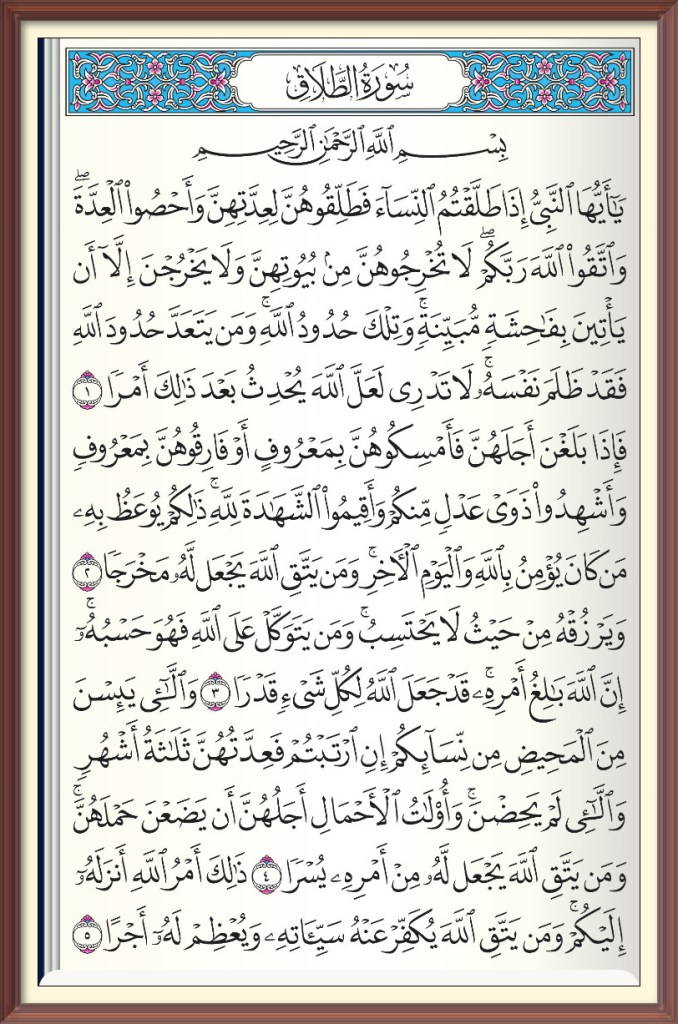 سُورَةُ الطَّلَاقِ
بِسْمِ ٱللَّهِ ٱلرَّحْمَٰنِ ٱلرَّحِيمِ
يَٰٓأَيُّهَا ٱلنَّبِيُّ إِذَا طَلَّقْتُمُ ٱلنِّسَآءَ فَطَلِّقُوهُنَّ لِعِدَّتِهِنَّ وَأَحْصُوا۟ ٱلْعِدَّةَ ۖ
وَٱتَّقُوا۟ ٱللَّهَ رَبَّكُمْ ۖ لَا تُخْرِجُوهُنَّ مِنۢ بُيُوتِهِنَّ وَلَا يَخْرُجْنَ إِلَّآ أَن
يَأْتِينَ بِفَٰحِشَةٍ مُّبَيِّنَةٍ ۚ وَتِلْكَ حُدُودُ ٱللَّهِ ۚ وَمَن يَتَعَدَّ حُدُودَ ٱللَّهِ
فَقَدْ ظَلَمَ نَفْسَهُۥ ۚ لَا تَدْرِى لَعَلَّ ٱللَّهَ يُحْدِثُ بَعْدَ ذَٰلِكَ أَمْرًا ١
فَإِذَا بَلَغْنَ أَجَلَهُنَّ فَأَمْسِكُوهُنَّ بِمَعْرُوفٍ أَوْ فَارِقُوهُنَّ بِمَعْرُوفٍ
وَأَشْهِدُوا۟ ذَوَىْ عَدْلٍ مِّنكُمْ وَأَقِيمُوا۟ ٱلشَّهَٰدَةَ لِلَّهِ ۚ ذَٰلِكُمْ يُوعَظُ بِهِۦ
مَن كَانَ يُؤْمِنُ بِٱللَّهِ وَٱلْيَوْمِ ٱلْـَٔاخِرِ ۚ وَمَن يَتَّقِ ٱللَّهَ يَجْعَل لَّهُۥ مَخْرَجًا ٢
وَيَرْزُقْهُ مِنْ حَيْثُ لَا يَحْتَسِبُ ۚ وَمَن يَتَوَكَّلْ عَلَى ٱللَّهِ فَهُوَ حَسْبُهُۥٓ ۚ
إِنَّ ٱللَّهَ بَٰلِغُ أَمْرِهِۦ ۚ قَدْ جَعَلَ ٱللَّهُ لِكُلِّ شَىْءٍ قَدْرًا ٣ وَٱلَّٰٓـِٔى يَئِسْنَ
مِنَ ٱلْمَحِيضِ مِن نِّسَآئِكُمْ إِنِ ٱرْتَبْتُمْ فَعِدَّتُهُنَّ ثَلَٰثَةُ أَشْهُرٍ
وَٱلَّٰٓـِٔى لَمْ يَحِضْنَ ۚ وَأُو۟لَٰتُ ٱلْأَحْمَالِ أَجَلُهُنَّ أَن يَضَعْنَ حَمْلَهُنَّ ۚ
وَمَن يَتَّقِ ٱللَّهَ يَجْعَل لَّهُۥ مِنْ أَمْرِهِۦ يُسْرًا ٤ ذَٰلِكَ أَمْرُ ٱللَّهِ أَنزَلَهُۥٓ
إِلَيْكُمْ ۚ وَمَن يَتَّقِ ٱللَّهَ يُكَفِّرْ عَنْهُ سَيِّـَٔاتِهِۦ وَيُعْظِمْ لَهُۥٓ أَجْرًا ٥